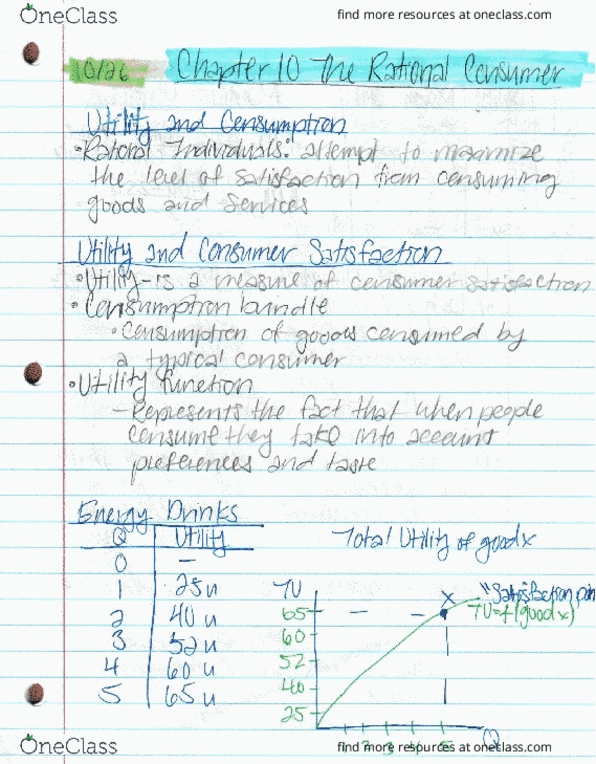 OneClass
find more resources at oneclass.com
10/26 Chapter 10 The Rational Consumer
Utility and Consumption
• Rational Individuals: attempt to maximize
the level of satisfaction from consuming
goods and services
Utility and Consumer Satisfaction
• Utility - is a measure of consumer satisfaction
• Consumption bundle
• Consumption of goods consumed by
a typical consumer
• Utility function
- Represents the fact that when people
consume they take into account
preferences and taste
Energy Drinks
Q Utility
0 —
1 25u
2 40 u
3 52 u
4 60 u
5 65 u
Total Utility of good x
TU
x "Satisfaction
65 TU=f(good x)
60
52
40
25
1 2 3 4 5 Q
OneClass
find more resources at oneclass.com